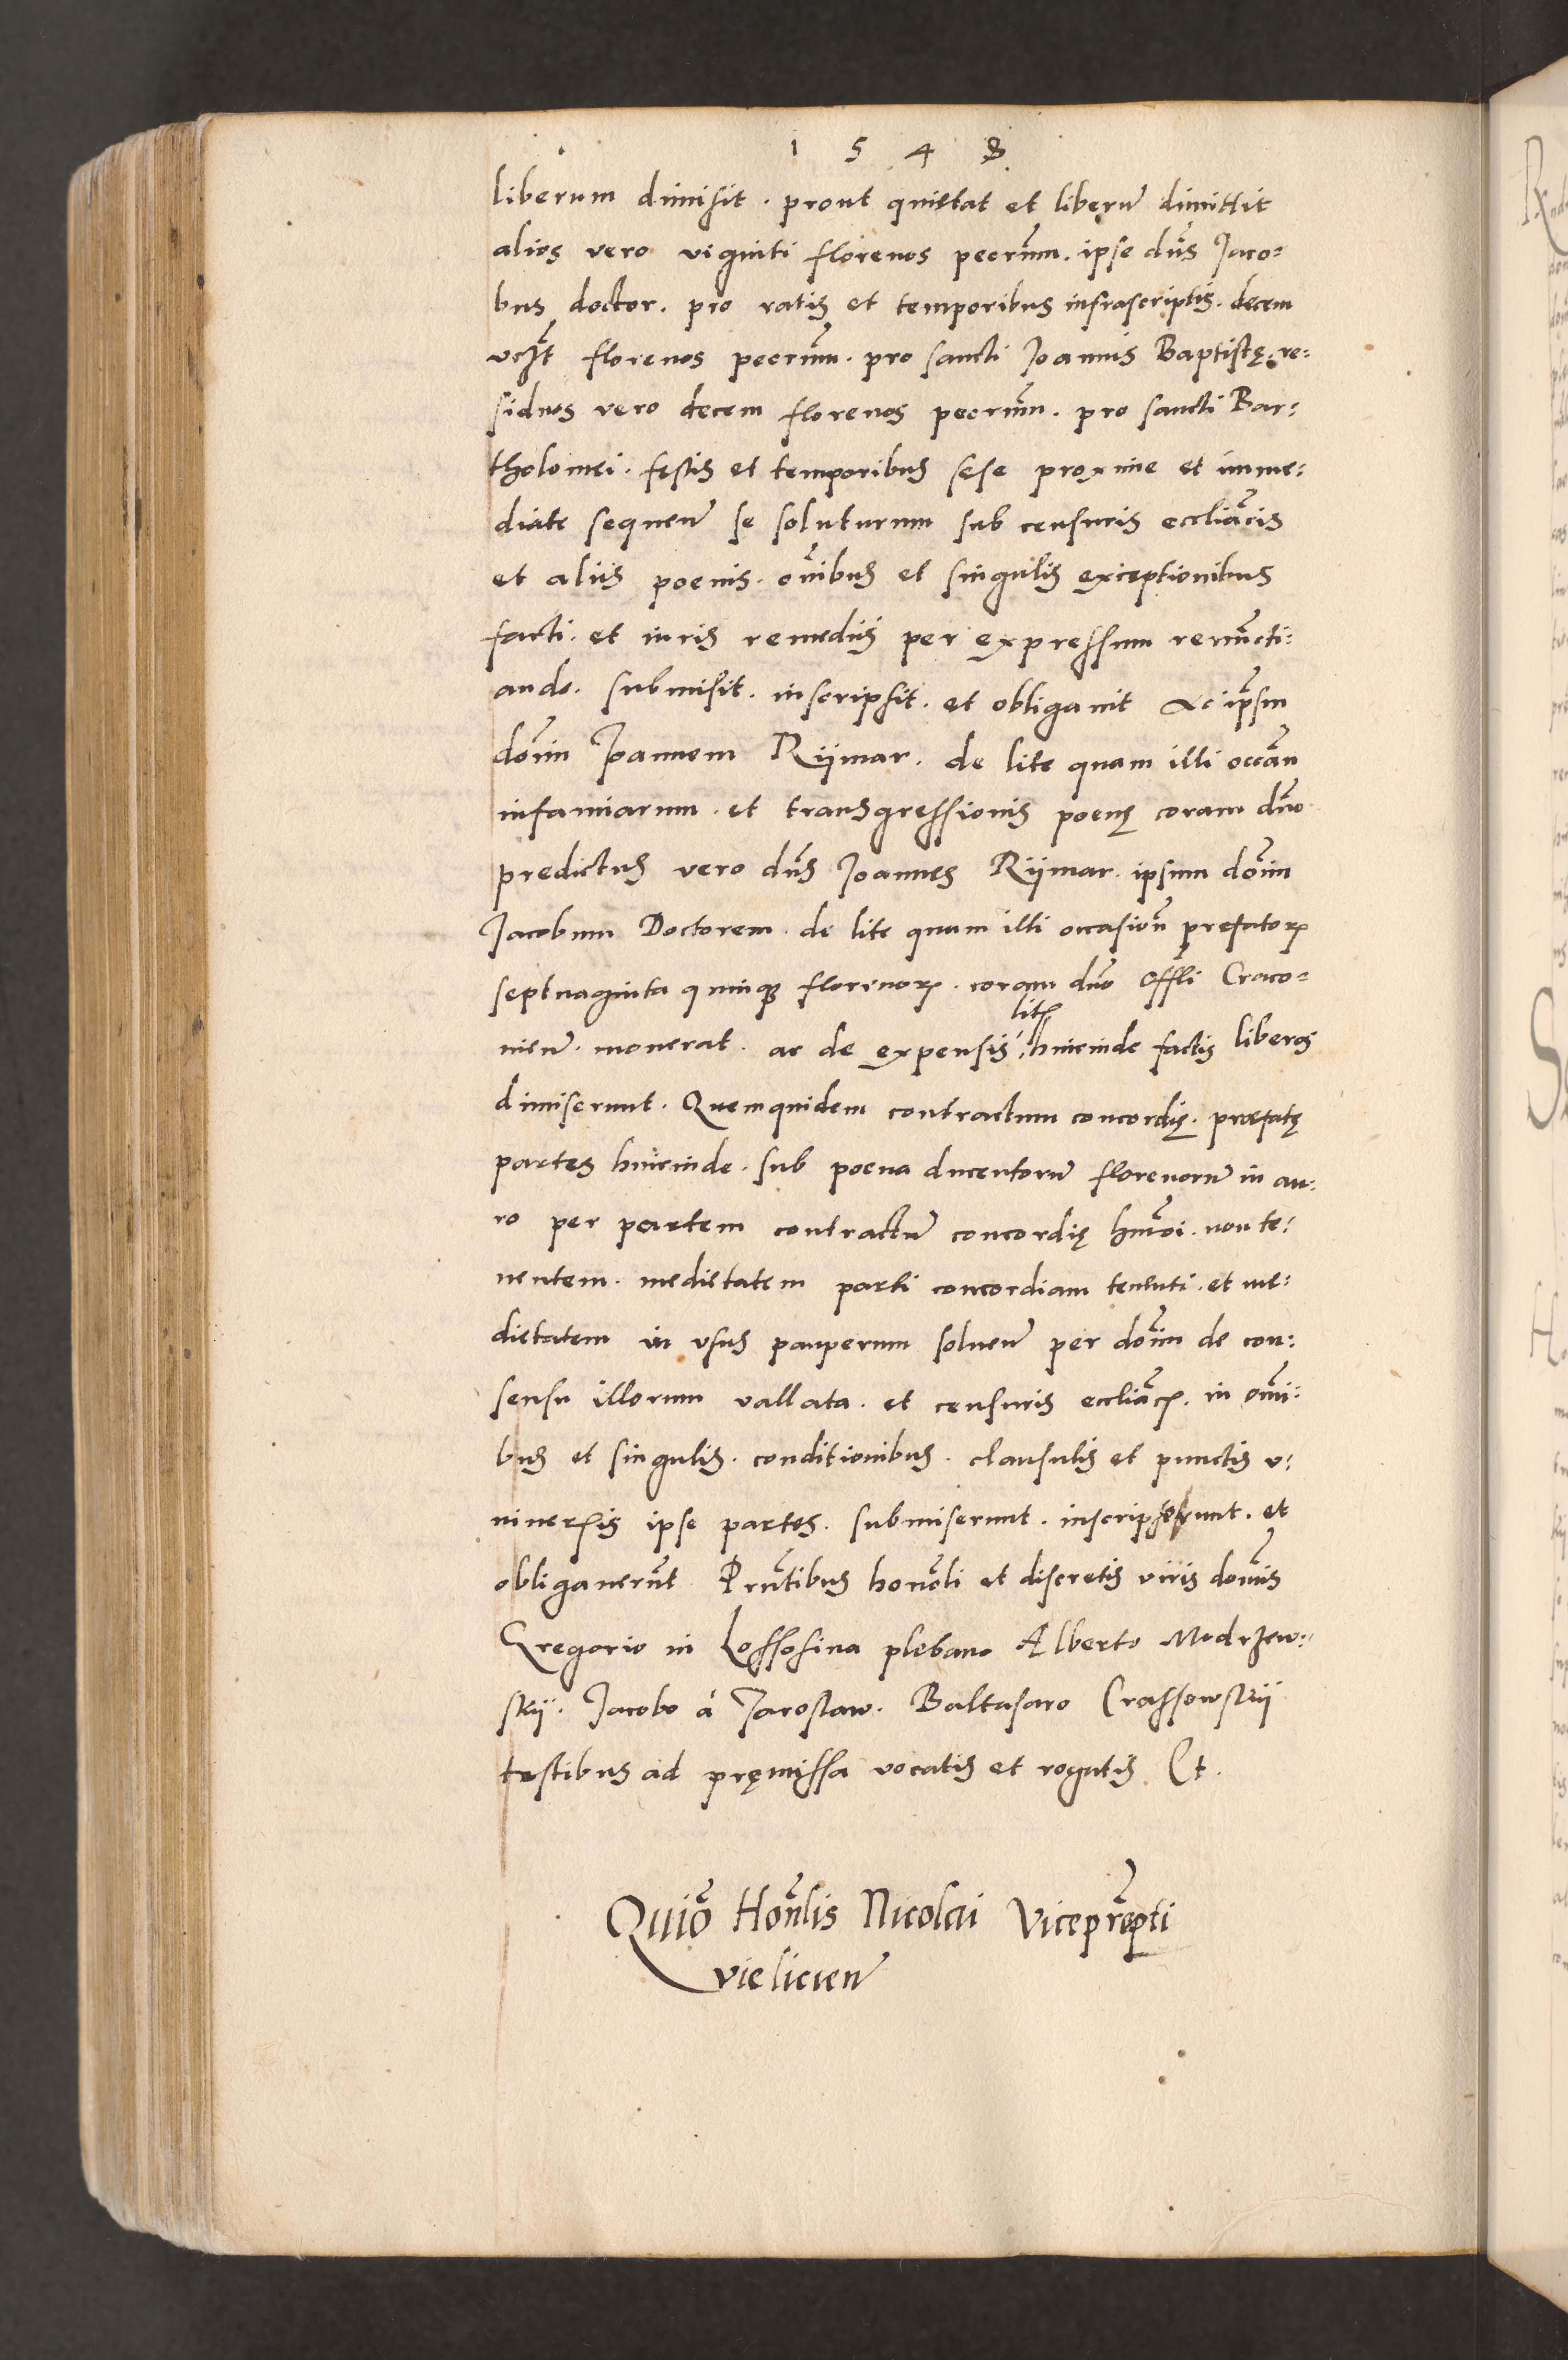 1 5 4 8
liberum dimisit . prout quittat et liberu͂ dimittit
alios vero viginti florenos pecun͂m . ipse dn͂s Jaco=
bus doctor . pro ratis et temporibus infrascriptis . decem
vc͂ꝫt florenos pecun͂m . pro sancti Joannis Baptistę . re=
siduos vero decem florenos pecun͂m . pro sancti Bar=
tholomei . festis et temporibus sese proxime et imme=
diate sequen͂ se soluturum sub censuris eccliãcis
et aliis poenis . om͂ibus et singulis exceptionibus
facti . et iuris remediis per expressum renun͂cti=
ando . submisit . inscripsit . et obligavit Ac ip͂sm
dom͂m Joannem Rijmar . de lite quam illi occãn
infamiarum . et transgressionis poenę coram dn͂o
predictus vero dn͂s Joannes Rijmar . ipsum dom͂m
Jacobum Doctorem . de lite quam illi occasion͂ prefatorꝝ
septuaginta quinqꝫ florenorꝝ . coram dn͂o Offli Craco=
nien͂ . moverat . ac de expensis litꝭ hincinde factis liberos
dimiserunt . Quemquidem contractum concordię . prefatę
partes hincinde . sub poena ducentoru͂ florenoru͂ in au=
ro per partem contractu͂ concordię hm͂oi . non te=
nentem . medietatem parti concordiam tenenti . et me=
dietatem in usus pauperum solven͂ per dom͂m de con=
sensu illorum vallata . et censuris eccliãcꝭ . in om͂i=
bus et singulis . conditionibus . clausulis et punctis u=
niversis ipse partes . submiserunt . inscripserunt . et
obligaverun͂t Prn͂tibus honor͂li et discretis viris dom͂is
Gregorio in Lossosina plebano Alberto Modrzew=
skij . Jacobo á Jaroslaw . Baltasaro Crassowskij
testibus ad pręmissa vocatis et rogatis Et .
Quiõ Hon͂lis Nicolai Vicepr͂epti
vielicien͂